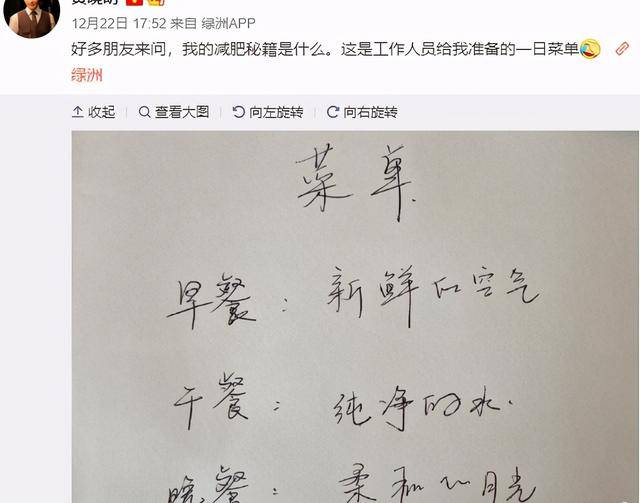 12月22日 17:52 来自 绿洲APP
好多朋友来问，我的减肥秘籍是什么。这是工作人员给我准备的一日菜单
绿洲
收起 查看大图 向左旋转 向右旋转
菜单
早餐：新鲜的空气
午餐：纯净的水.
晚餐：柔和的月光